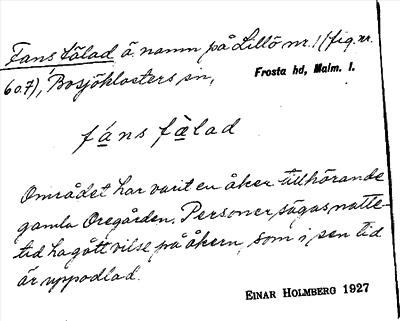 Fans fälad ä. namn på Lillö nr. 1 (fig. nr.
607), Bosjöklosters sn,
Frosta hd, Malm. l.
fáns fä̀lad
Området har varit en åker tillhörande
gamla Oregården. Personer sägas natte-
tid ha gått vilse på åkern, som i sen tid
är uppodlad.
EINAR HOLMBERG 1927